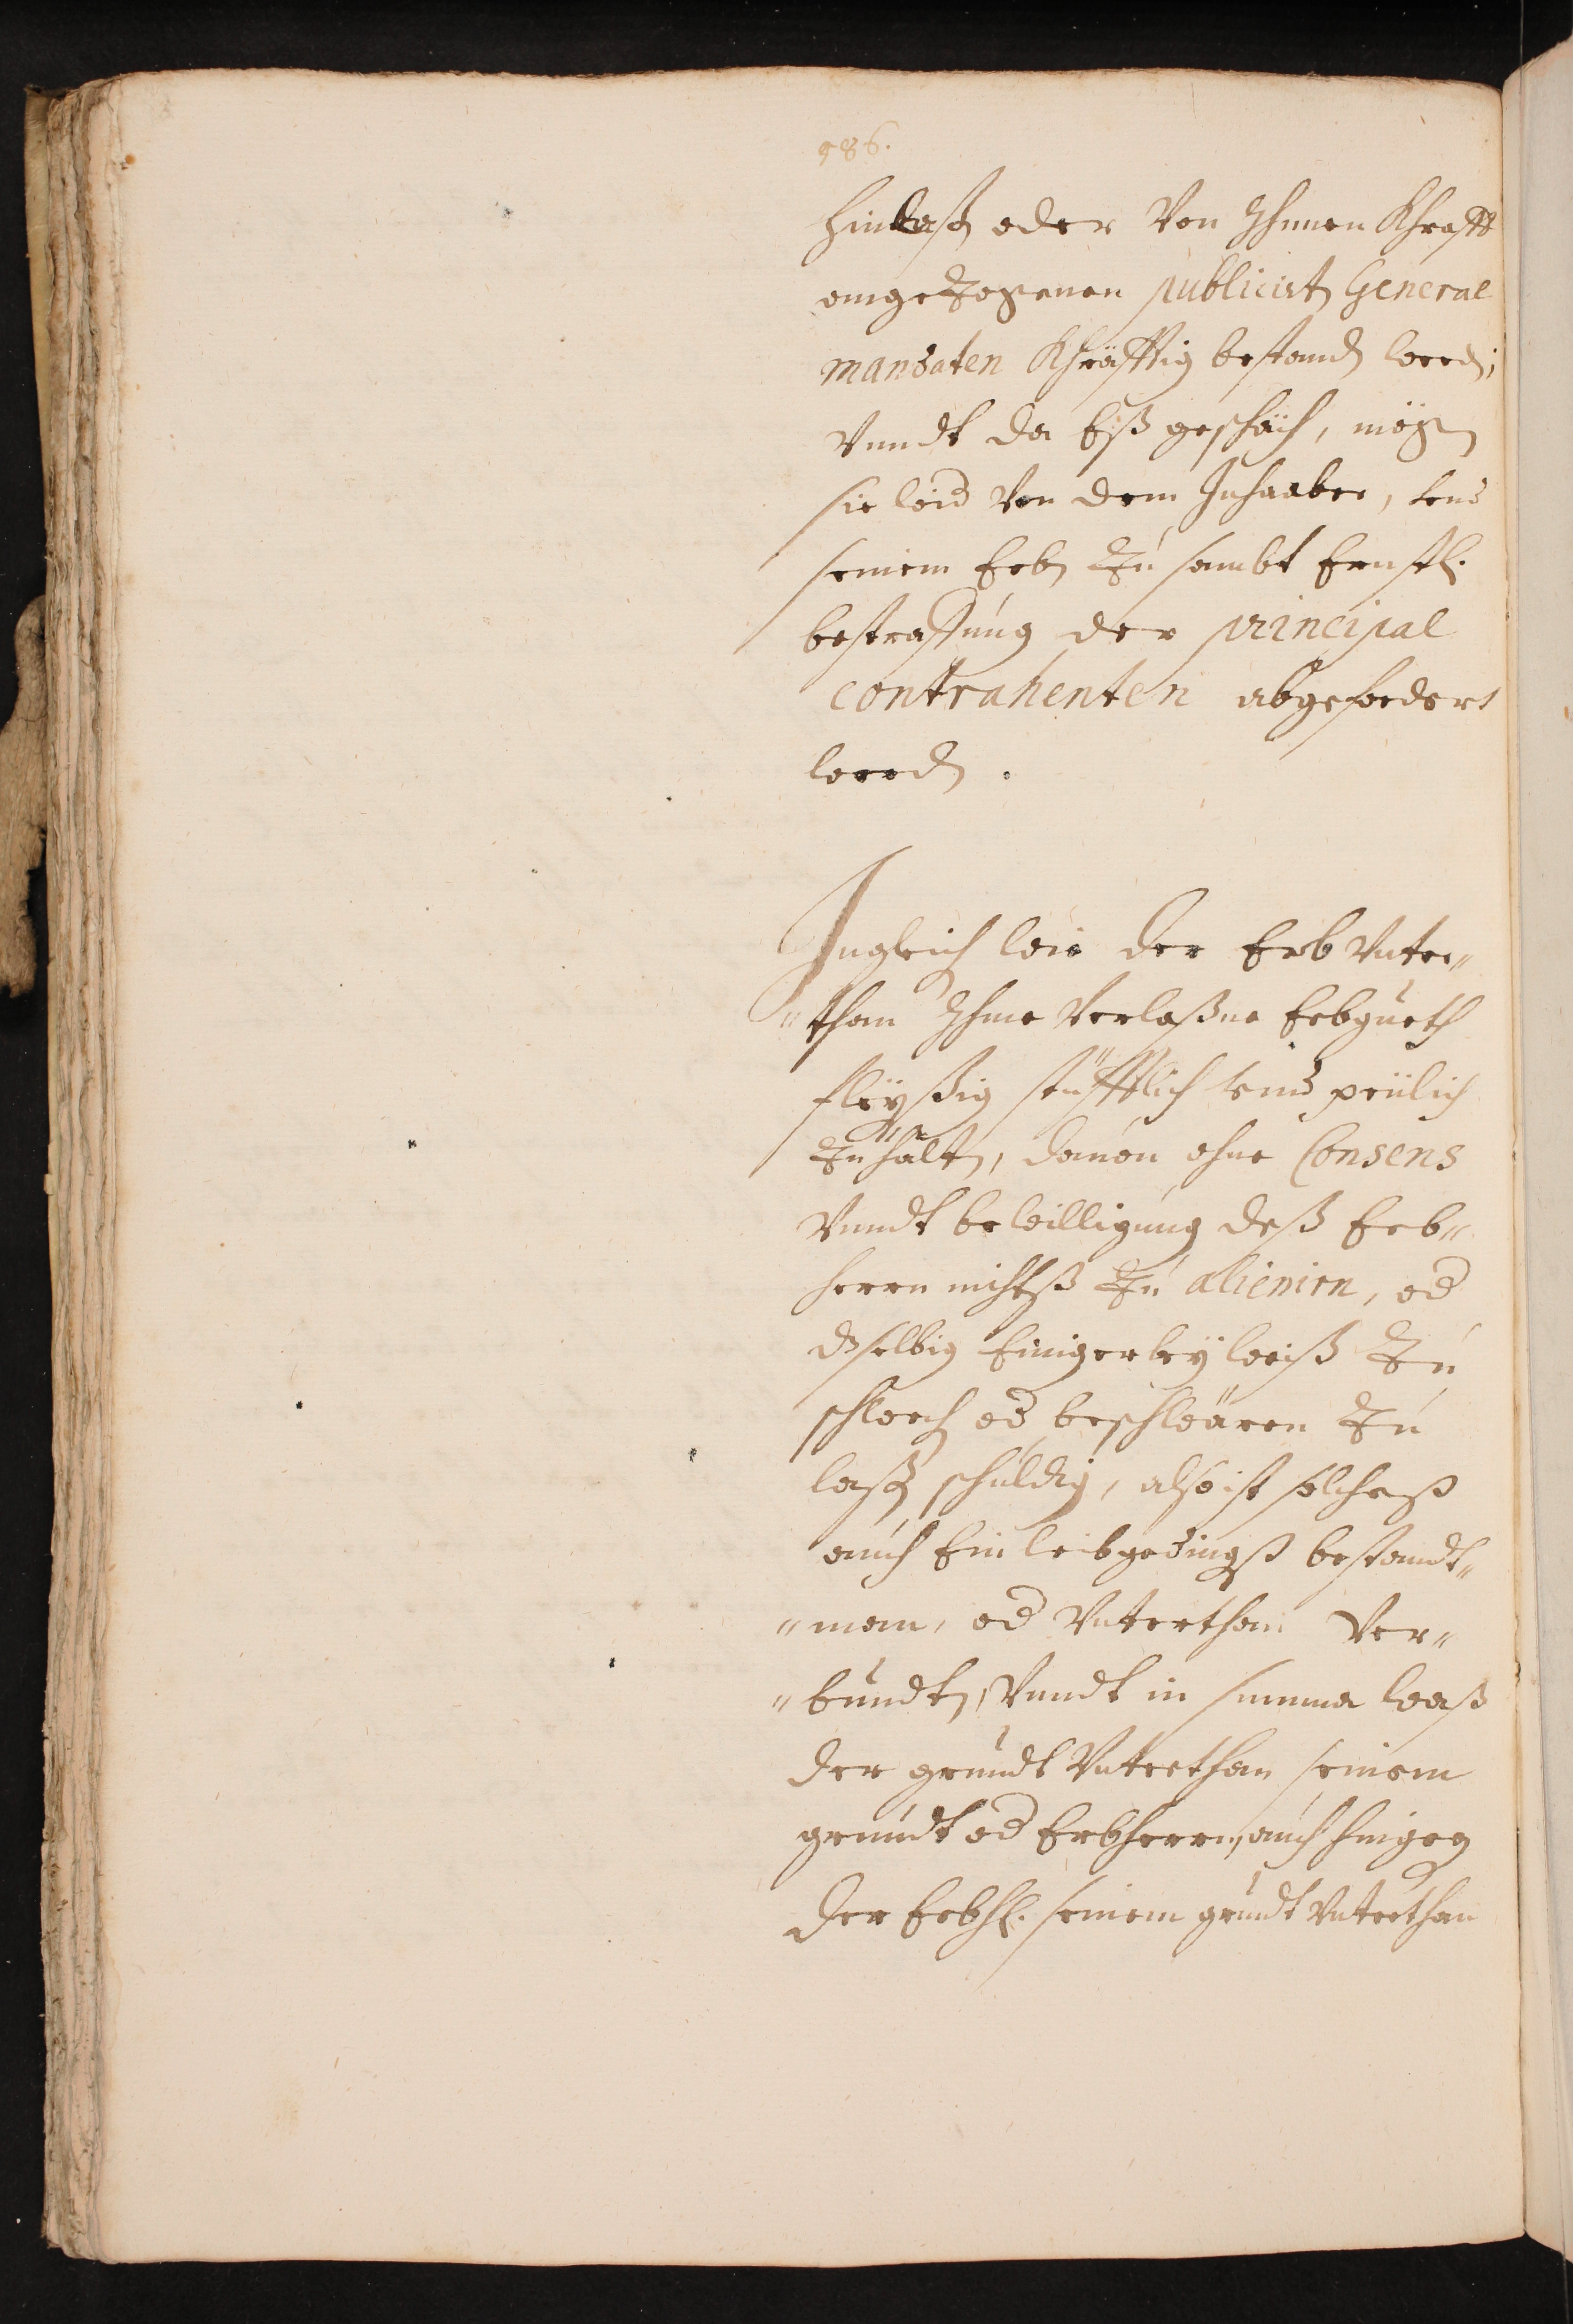 986.
hinlaßen oder Von Ihnnen Khrafft
angezogenen publicirten General
mandaten Khräfftig bestanden werden;
Vnndt da Eß geschäch, mögen
sie wid Von dem Inhaaber, vnd
seinem Erben Zu sambt Ernstl.
bestraffung der principal
contrahenten abgefordert
werden.
Ingleich wie der Erb Vnter„
„than Ihme Verlaßne Erbgueth
fleÿßig stüfftlich vnd peülich
Zuhalten, dauon ohne Consens
Vnndt bewilligung deß Erb„
herrn nichtß Zu alienirn, od
dselbig Einigerleÿ weiß Zu
schwech od beschwären Zu
laßen schuldig, also ist solcheß
auch Ein leibgedingß bestandt„
„man, od Vnterthan Ver„
„bundten, Vnndt in summa waß
der grundt Vnterthan seinem
grundt od Erbherrn, auch hingeg
der Erbh. seinem grundt Vnterthan